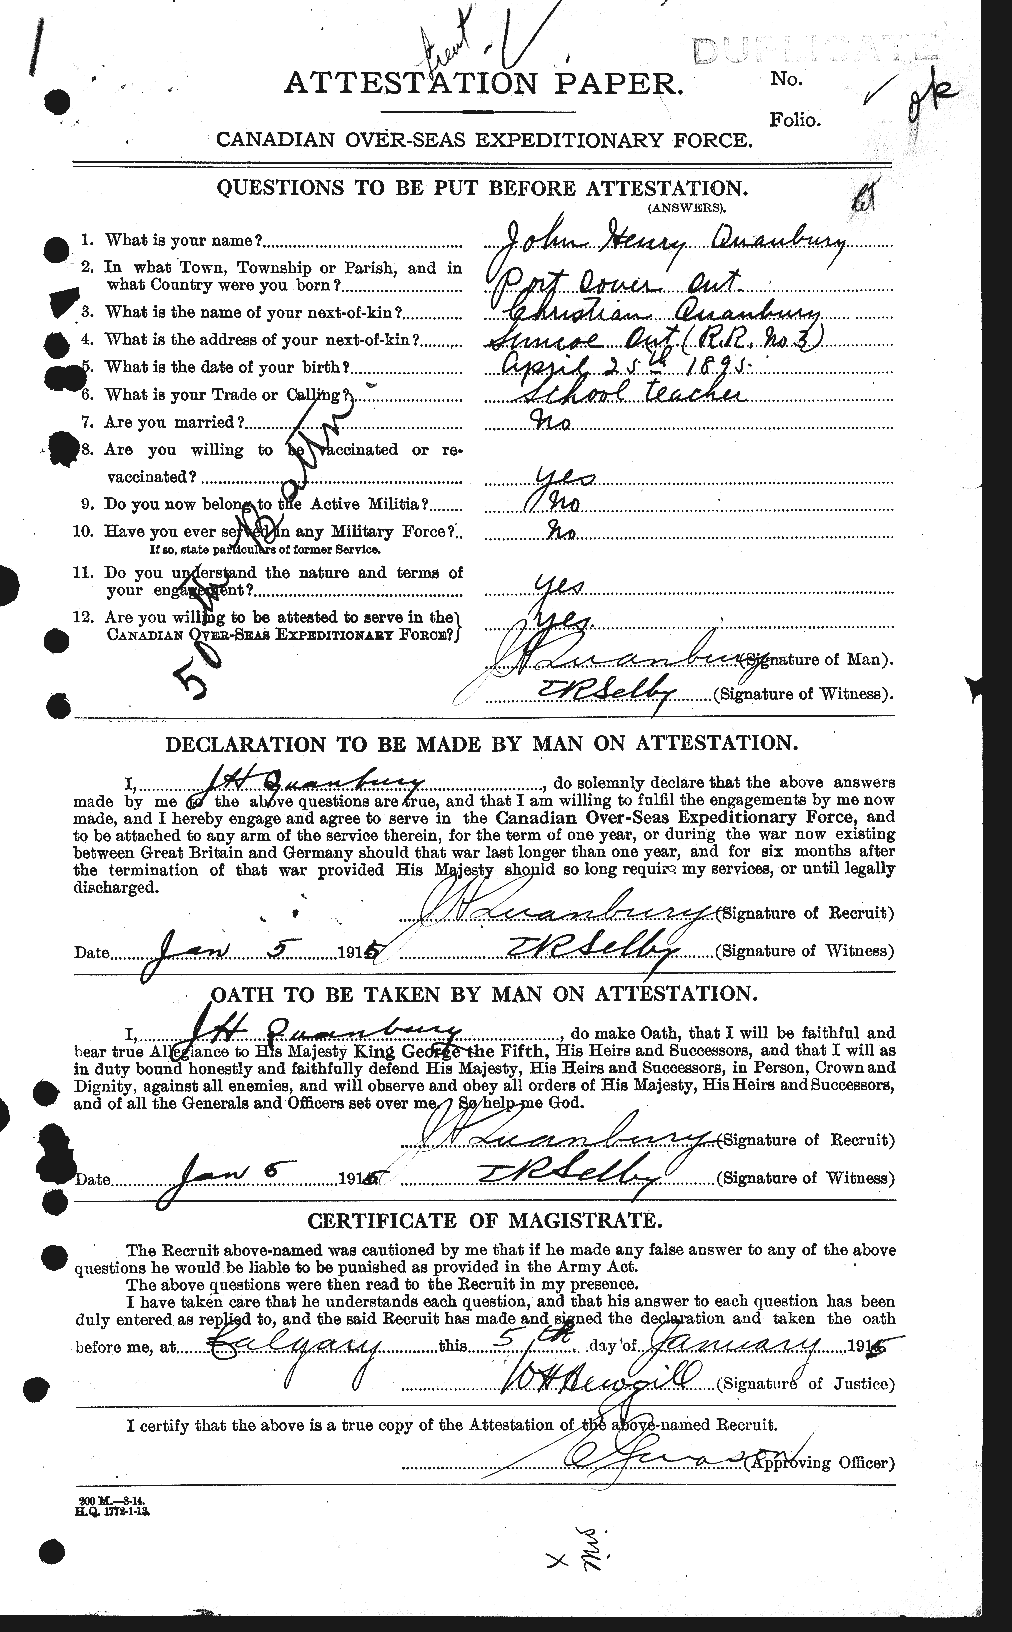 DUPLICATE
ATTESTATION PAPER.
No.
ok
Folio.
CANADIAN OVER-SEAS EXPEDITIONARY FORCE.
QUESTIONS TO BE PUT BEFORE ATTESTATION.
(ANSWERS).
1. What is your name? John Henry Quanbury
2. In what Town, Township or Parish, and in
what Country were you born? Port Dover Ont.
3. What is the name of your next-of-kin? Christian Quanbury
4. What is the address of your next-of-kin? Simcoe Ont (R.R. No 3)
5. What is the date of your birth? April 25th 1895.
6. What is your Trade or Calling? School teacher
7. Are you married? No
8. Are you willing to be vaccinated or re-
vaccinated? yes
9. Do you now belong to the Active Militia? No
10. Have you ever served in any Military Force? No
If so, state particulars of former Service.
11. Do you understand the nature and terms of
your engagement? yes
12. Are you willing to be attested to serve in the
CANADIAN OVER-SEAS EXPEDITIONARY FORCE? } yes.
50th Battn
JH Quanbury (Signature of Man).
TR Selby (Signature of Witness).
DECLARATION TO BE MADE BY MAN ON ATTESTATION.
I, JH Quanbury, do solemnly declare that the above answers
made by me to the above questions are true, and that I am willing to fulfil the engagements by me now
made, and I hereby engage and agree to serve in the Canadian Over-Seas Expeditionary Force, and
to be attached to any arm of the service therein, for the term of one year, or during the war now existing
between Great Britain and Germany should that war last longer than one year, and for six months after
the termination of that war provided His Majesty should so long require my services, or until legally
discharged.
JH Quanbury (Signature of Recruit)
Date Jan 5 1915 TR Selby (Signature of Witness)
OATH TO BE TAKEN BY MAN ON ATTESTATION.
I, JH Quanbury, do make Oath, that I will be faithful and
bear true Allegiance to His Majesty King George the Fifth, His Heirs and Successors, and that I will as
in duty bound honestly and faithfully defend His Majesty, His Heirs and Successors, in Person, Crown and
Dignity, against all enemies, and will observe and obey all orders of His Majesty, His Heirs and Successors,
and of all the Generals and Officers set over me. So help me God.
JH Quanbury (Signature of Recruit)
Date Jan 5 1915 TR Selby (Signature of Witness)
CERTIFICATE OF MAGISTRATE.
The Recruit above-named was cautioned by me that if he made any false answer to any of the above
questions he would be liable to be punished as provided in the Army Act.
The above questions were then read to the Recruit in my presence.
I have taken care that he understands each question, and that his answer to each question has been
duly entered as replied to, and the said Recruit has made and signed the declaration and taken the oath
before me, at Calgary this 5th day of January 1915
(Signature of Justice)
I certify that the above is a true copy of the Attestation of the above-named Recruit.
(Approving Officer)
200 M.—8-14.
H.Q. 1772-1-13.
X
Mis.